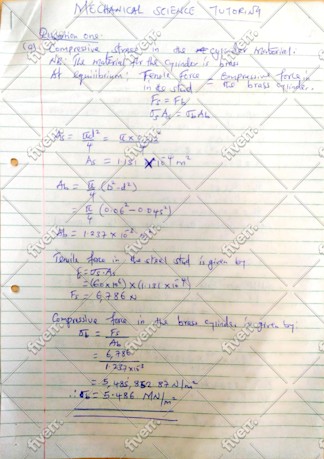 MECHANICAL SCIENCE TUTORIAL
Question one:
(a) Compressive stress in the cylinder material.
NB: The material for the cylinder is brass
At equilibrium: Tensile force = Compressive force in
in the stud the brass cylinder.
Fs = Fb
σsAs = σbAb
As = πd²/4
As = 1.131 × 10⁻⁴ m²
Ab = π/4 (D² - d²)
= π/4 (0.06² - 0.045²)
Ab = 1.237 × 10⁻³ m²
Tensile force in the steel stud is given by
= σs.As
= (60 × 10⁶) × (1.131 × 10⁻⁴)
Fs = 6,786 N
Compressive force in the brass cylinder is given by:
σb = Fs/Ab
= 6,786/1.237×10³
= 5,485,852.87 N/m²
∴ σb = 5.486 MN/m²
fiverr